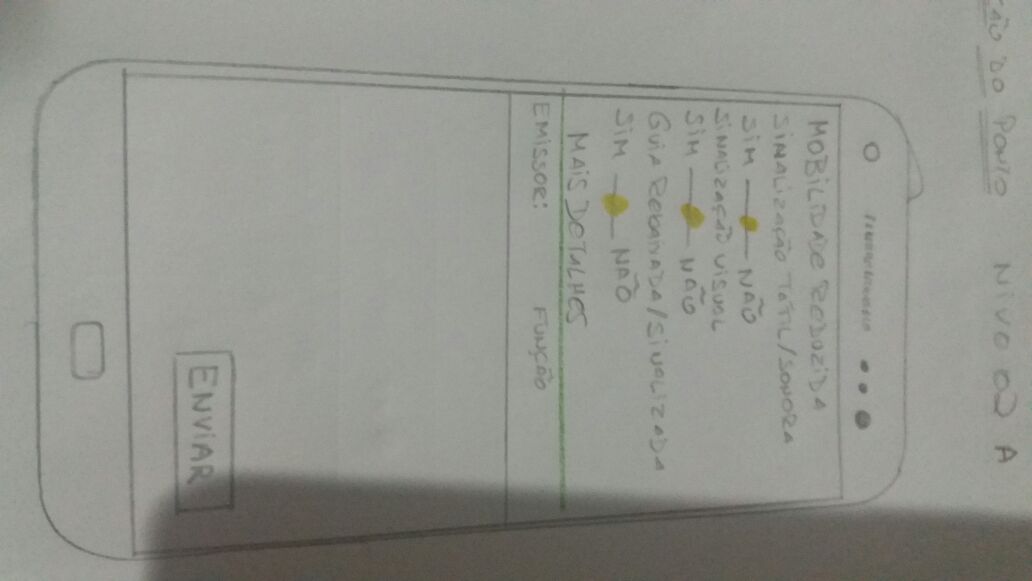 ÇÃO DO PONTO NIVO 02 A
MOBILIDADE REDUZIDA
SINALIZAÇÃO TÁTIL/SONORA
SIM NÃO
SINALIZAÇÃO VISUAL
SIM NÃO
GUIA REBAIXADA/SINALIZADA
SIM NÃO
MAIS DETALHES
EMISSOR: FUNÇÃO
ENVIAR